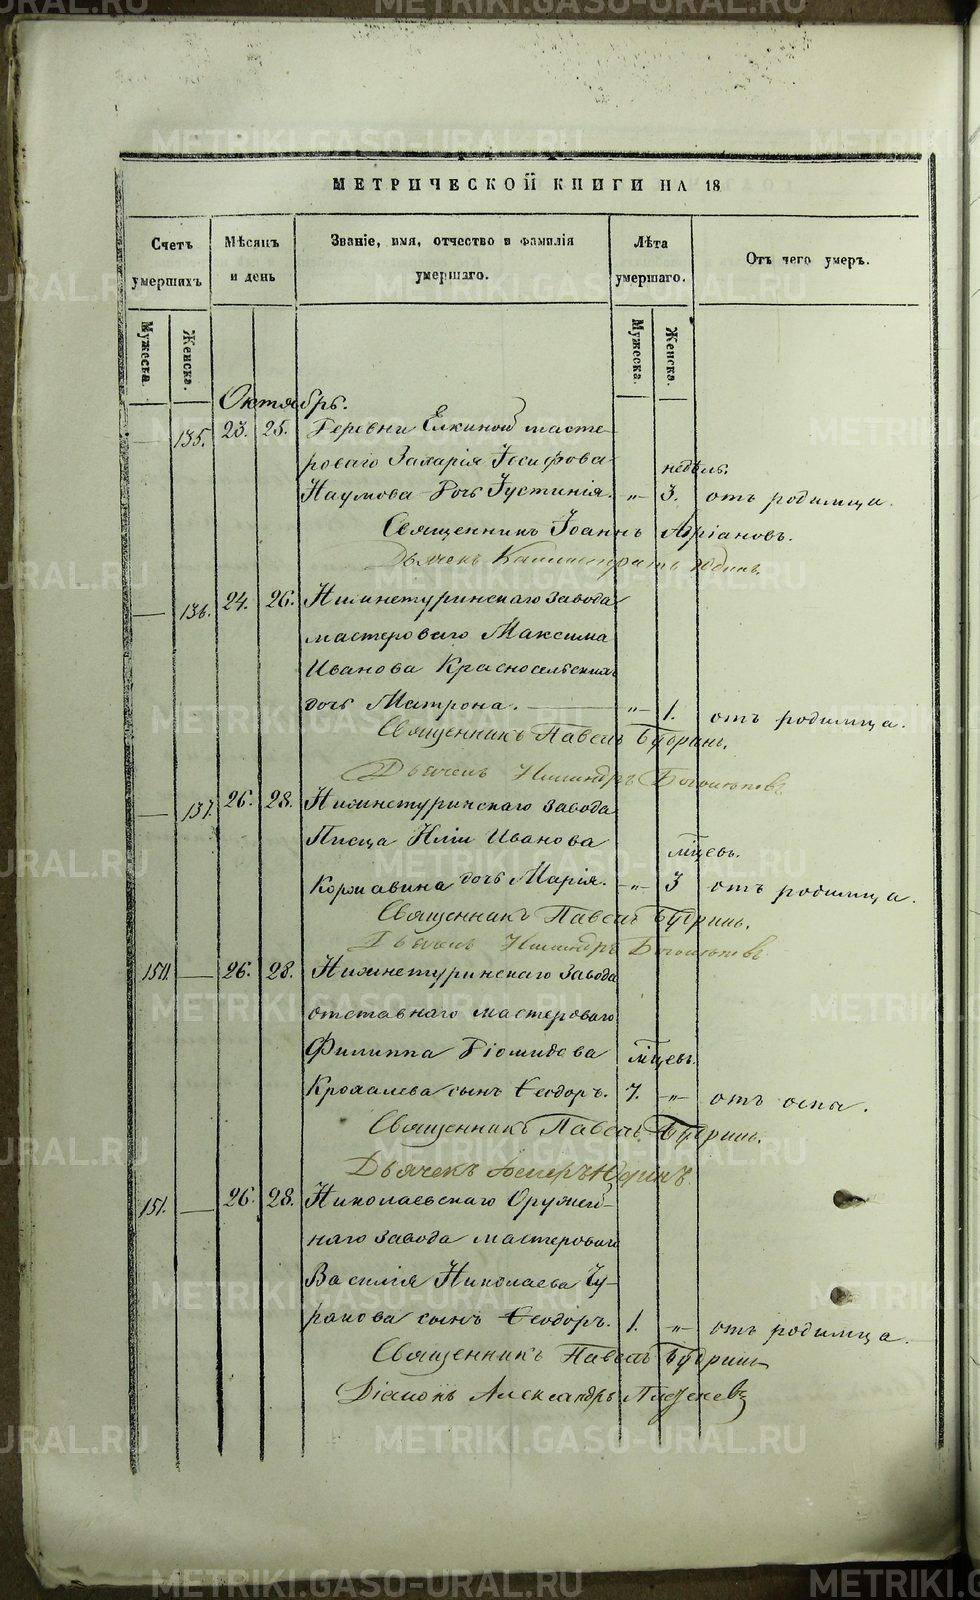 МЕТРИЧЕСКОЙ КНИГИ НА 18
Счетъ умершихъ
Мѣсяцъ и день
Званіе, имя, отчество и фамилія умершаго.
Лѣта умершаго.
Отъ чего умеръ.
Мужеска.
Женска.
Мужеска.
Женска.
Октябрь.
135. 23. 25. Деревни Елкиной масте-
роваго Захарія Іосифова недѣль.
Наумова дочь Іустинія. „ 3. отъ родимца.
Священникъ Іоаннъ Адріановъ.
Дьячекъ
136. 24. 26. Нижнетуринскаго завода
мастероваго Максима
Иванова Красносельскихъ
дочь Матрона. „ 1. отъ родимца.
Священникъ Павелъ Будринъ.
Дьячекъ
137. 26. 28. Нижнетуринскаго завода
Писца Иліи Иванова мѣцевъ.
Коржавина дочь Марія. „ 3 отъ родимца.
Священникъ Павелъ Будринъ.
Дьячекъ
150. 26. 28. Нижнетуринскаго завода
отставнаго мастероваго
Филиппа Діомидова мѣцевъ.
Крохалева сынъ Ѳеодоръ. 7. „ отъ оспы.
Священникъ Павелъ Будринъ.
Дьячекъ
151. 26. 28. Николаевскаго Оружей-
наго завода мастероваго
Василія Николаева Чу-
ракова сынъ Ѳеодоръ. 1. „ отъ родимца.
Священникъ Павелъ Будринъ
Діаконъ Александръ
METRIKI.GASO-URAL.RU